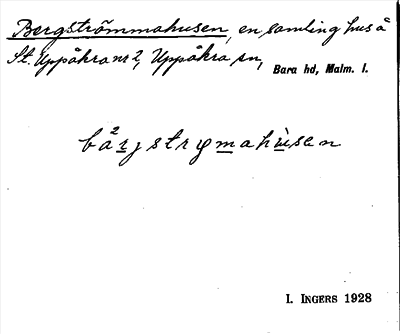 Bergströmmahusen, en samling hus å
St. Uppåkra nr 2, Uppåkra sn, Bara hd, Malm. l.
bå²rjstrφmahùsen
I. INGERS 1928